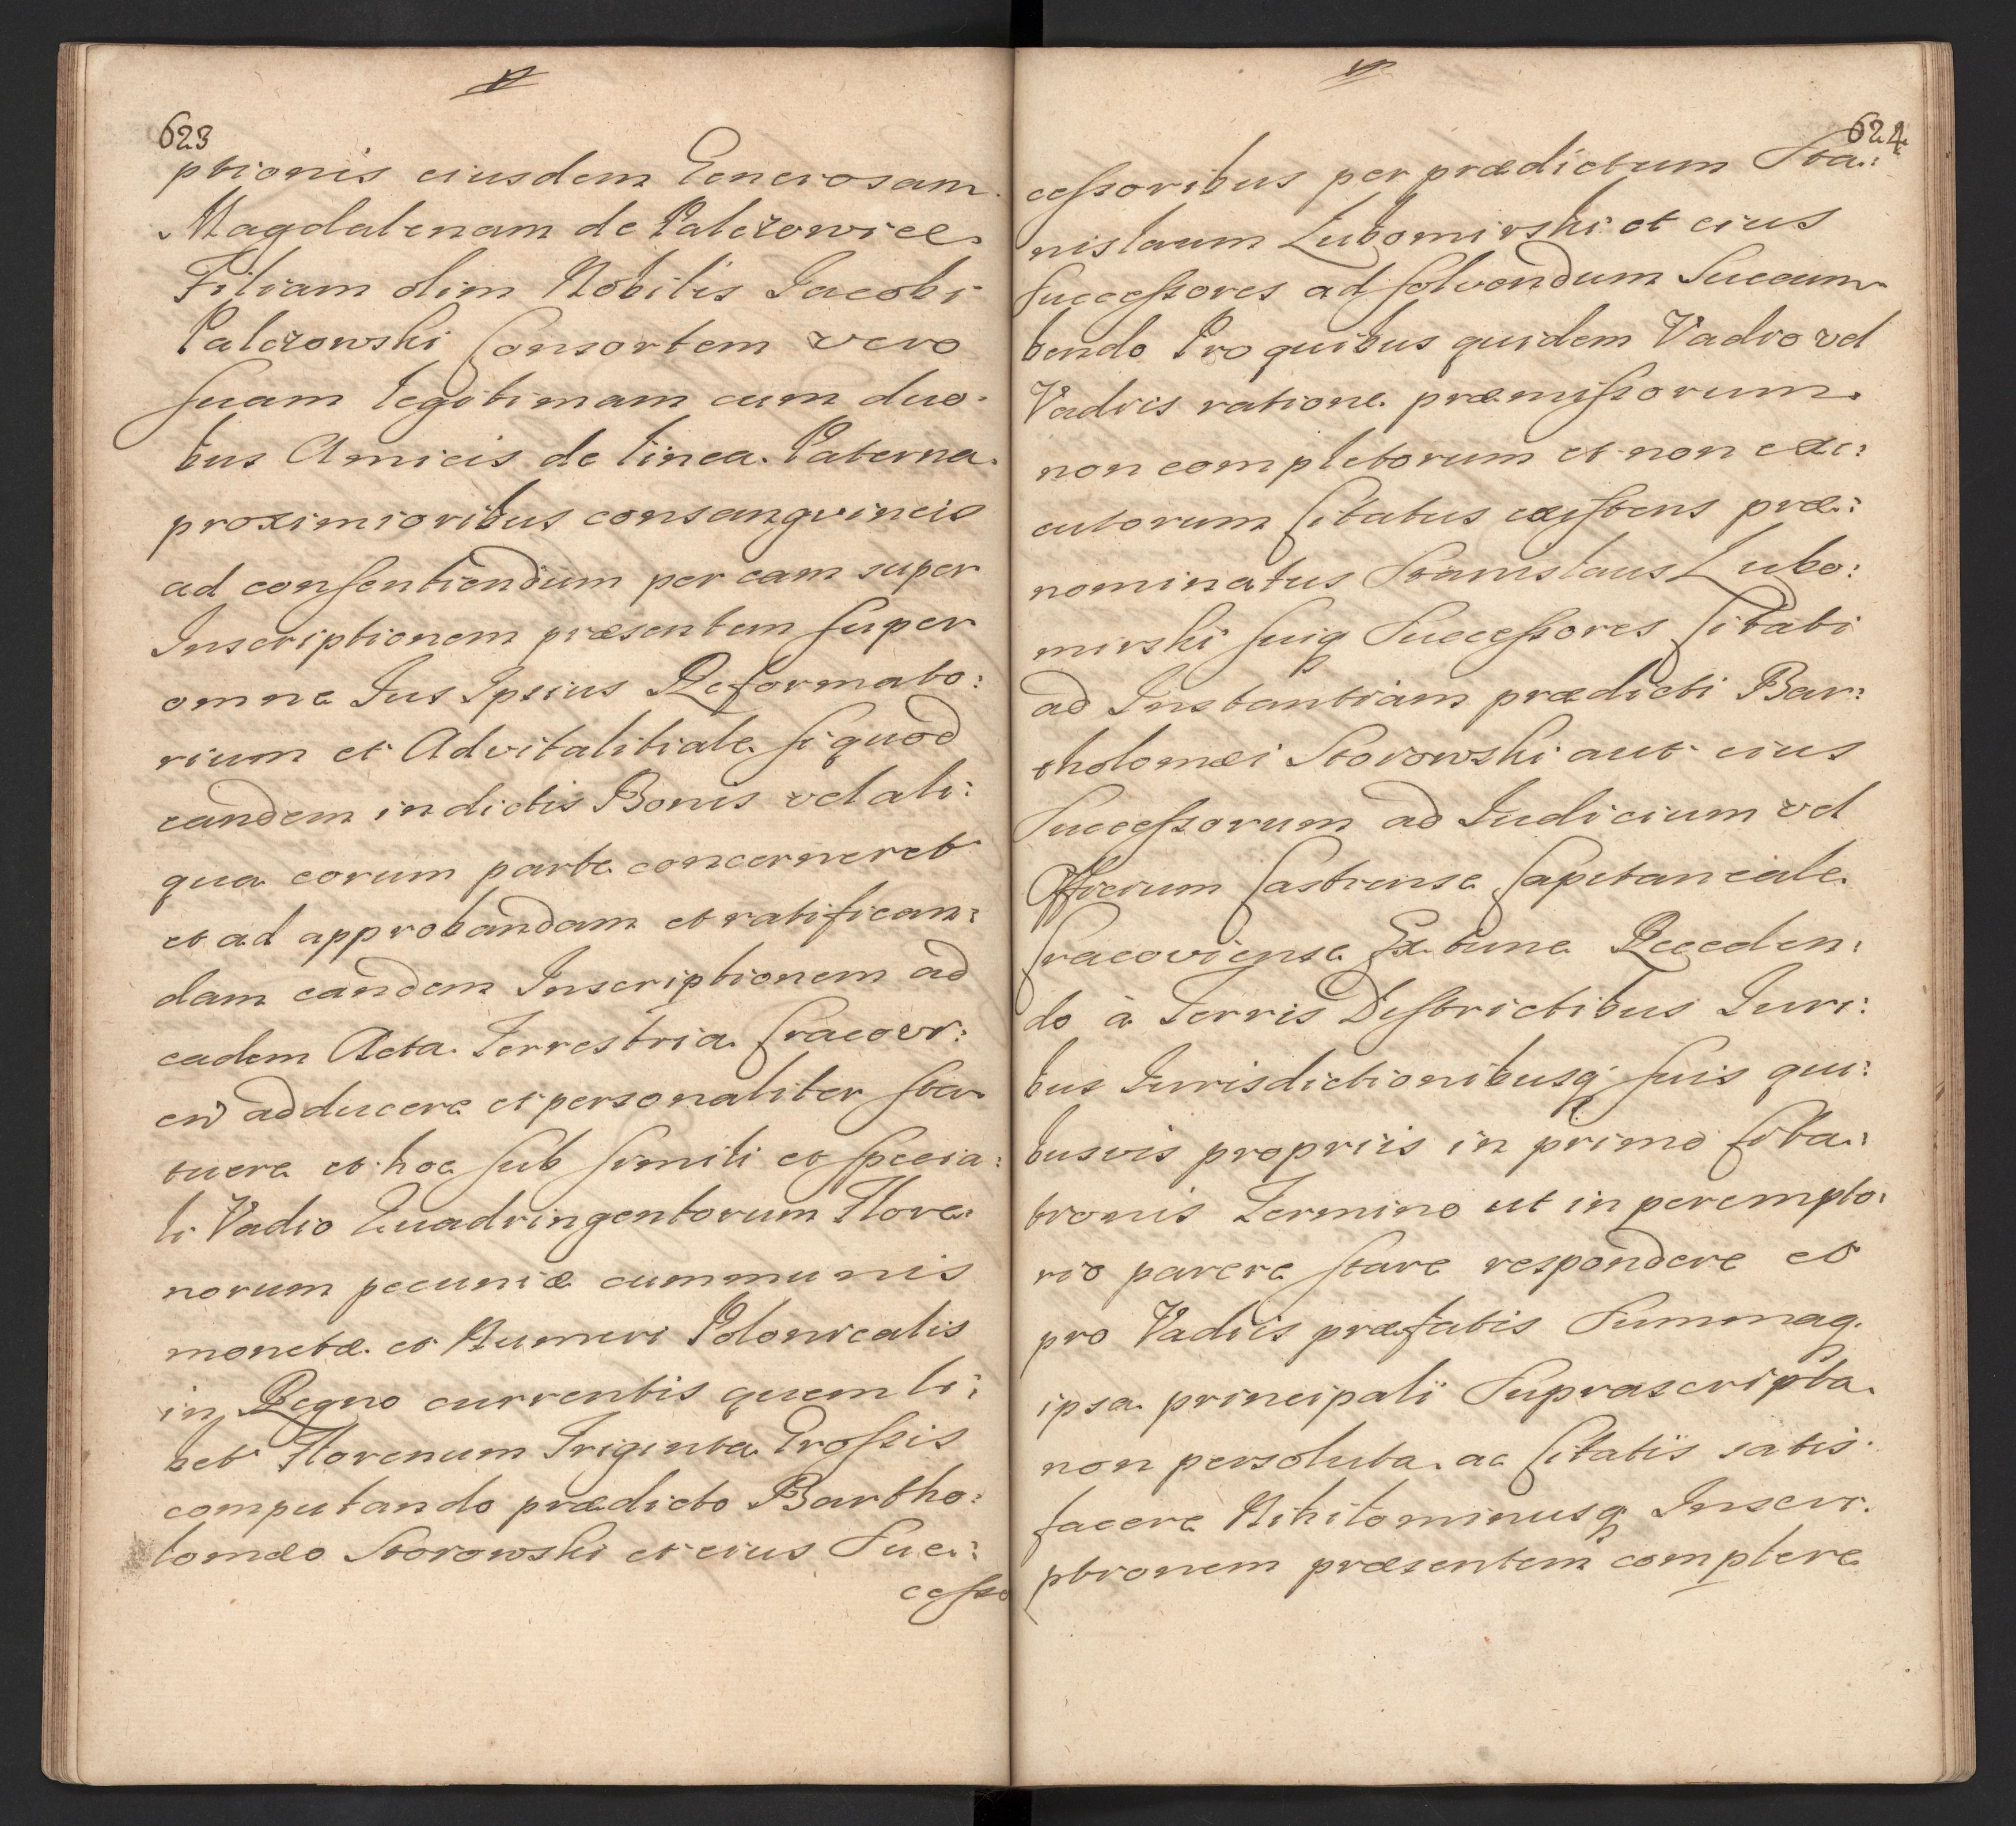 623
ptionis eiusdem Generosam
Magdalenam de Palczowice
Filiam olim Nobilis Jacobi
Palczowski Consortem vero
suam legitimam cum duo-
bus Amicis de linea Paterna
proximioribus consangvineis
ad consentiendum per eam super
Inscriptionem præsentem super
omne Jus Ipsius Reformato:
rium et Advitalitiale si quod
eandem in dictis Bonis vel ali:
qua eorum parte concerneret
et ad approbandam et ratifican:
dam eandem Inscriptionem ad
eadem Acta Terrestria Cracovi:
en adducere et personaliter sta
tuere et hoc sub simili et specia:
li Vadio Quadringentorum Flore:
norum pecuniæ cummunis
monetæ et Numeri Polonicalis
in Regno currentis quemli:
bet Florenum Triginta Grossis
computando prædicto Bartho:
lomæo Storowski et eius Suc:
cesso
624
cessoribus per prædictum Sta:
nislaum Lubomirski et eius
Successores ad solvendum Succum
bendo Pro quibus quidem Vadio vel
Vadiis ratione præmissorum
non completorum et non exe:
cutorum Citatus existens præ:
nominatus Stanislaus Lubo:
mirski suiq Successores Citati
ad Instantiam prædicti Bar:
tholomæi Storowski aut eius
Successorum ad Iudicium vel
Officium Castrense Capitaneale
Cracoviense Ex tunc Receden:
do à Terris Districtibus Iuri:
bus Iurisdictionibusq suis qui:
busvis propriis in primo Cita:
tionis Termino ut in perempto:
rio parere stare respondere et
pro Vadiis præfatis Summaq
ipsa principali Suprascripta
non persoluta ac Citatis satis
facere Nihilominusq Inscri
ptionem præsentem complere